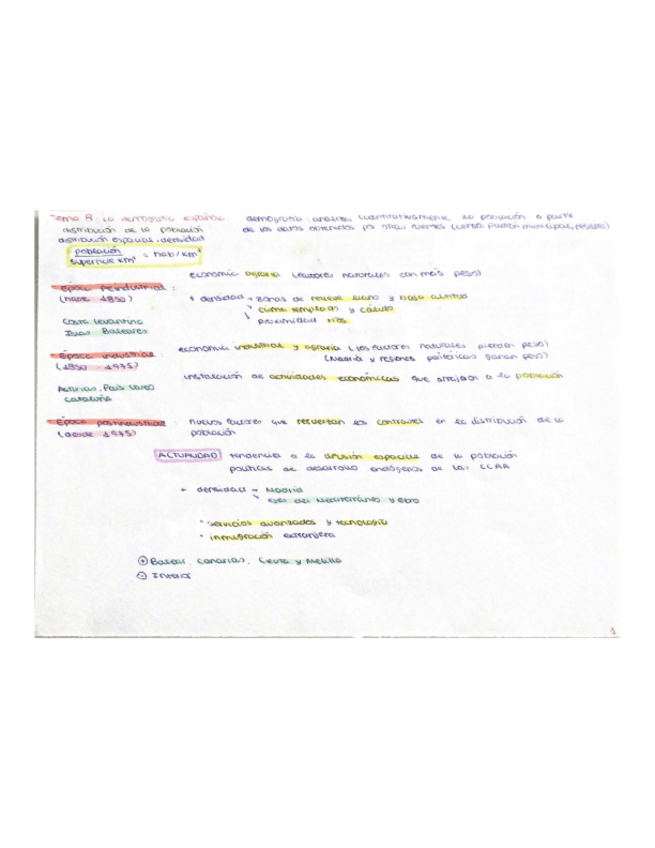 Tema 8: La demografía española
demografía: analiza cuantitativamente la población a partir
de los datos obtenidos por otras fuentes (censo, padrón municipal, registro)
distribución de la población
distribución espacial: densidad
población
superficie km² = hab/km²
economía agraria (factores naturales con más peso)
Época Preindustrial:
(hasta 1850)
+ densidad → zonas de relieve llano y baja altitud
clima templado y cálido
proximidad ríos
Costa levantina
Islas Baleares
economía industrial y agraria (los factores naturales pierden peso)
(Madrid y regiones periféricas ganan peso)
Época industrial:
(1850 - 1975)
instalación de actividades económicas que atraigan a la población
Asturias, País Vasco
Cataluña
Época postindustrial:
(desde 1975)
nuevos factores que refuerzan los contrastes en la distribución de la
población
ACTUALIDAD: tendencia a la difusión espacial de la población
políticas de desarrollo endógenos de las CCAA
+ densidad → Madrid
ejes del Mediterráneo y Ebro
· servicios avanzados y tecnología
· inmigración extranjera
⊕ Balear, Canarias, Ceuta y Melilla
⊖ Interior
1